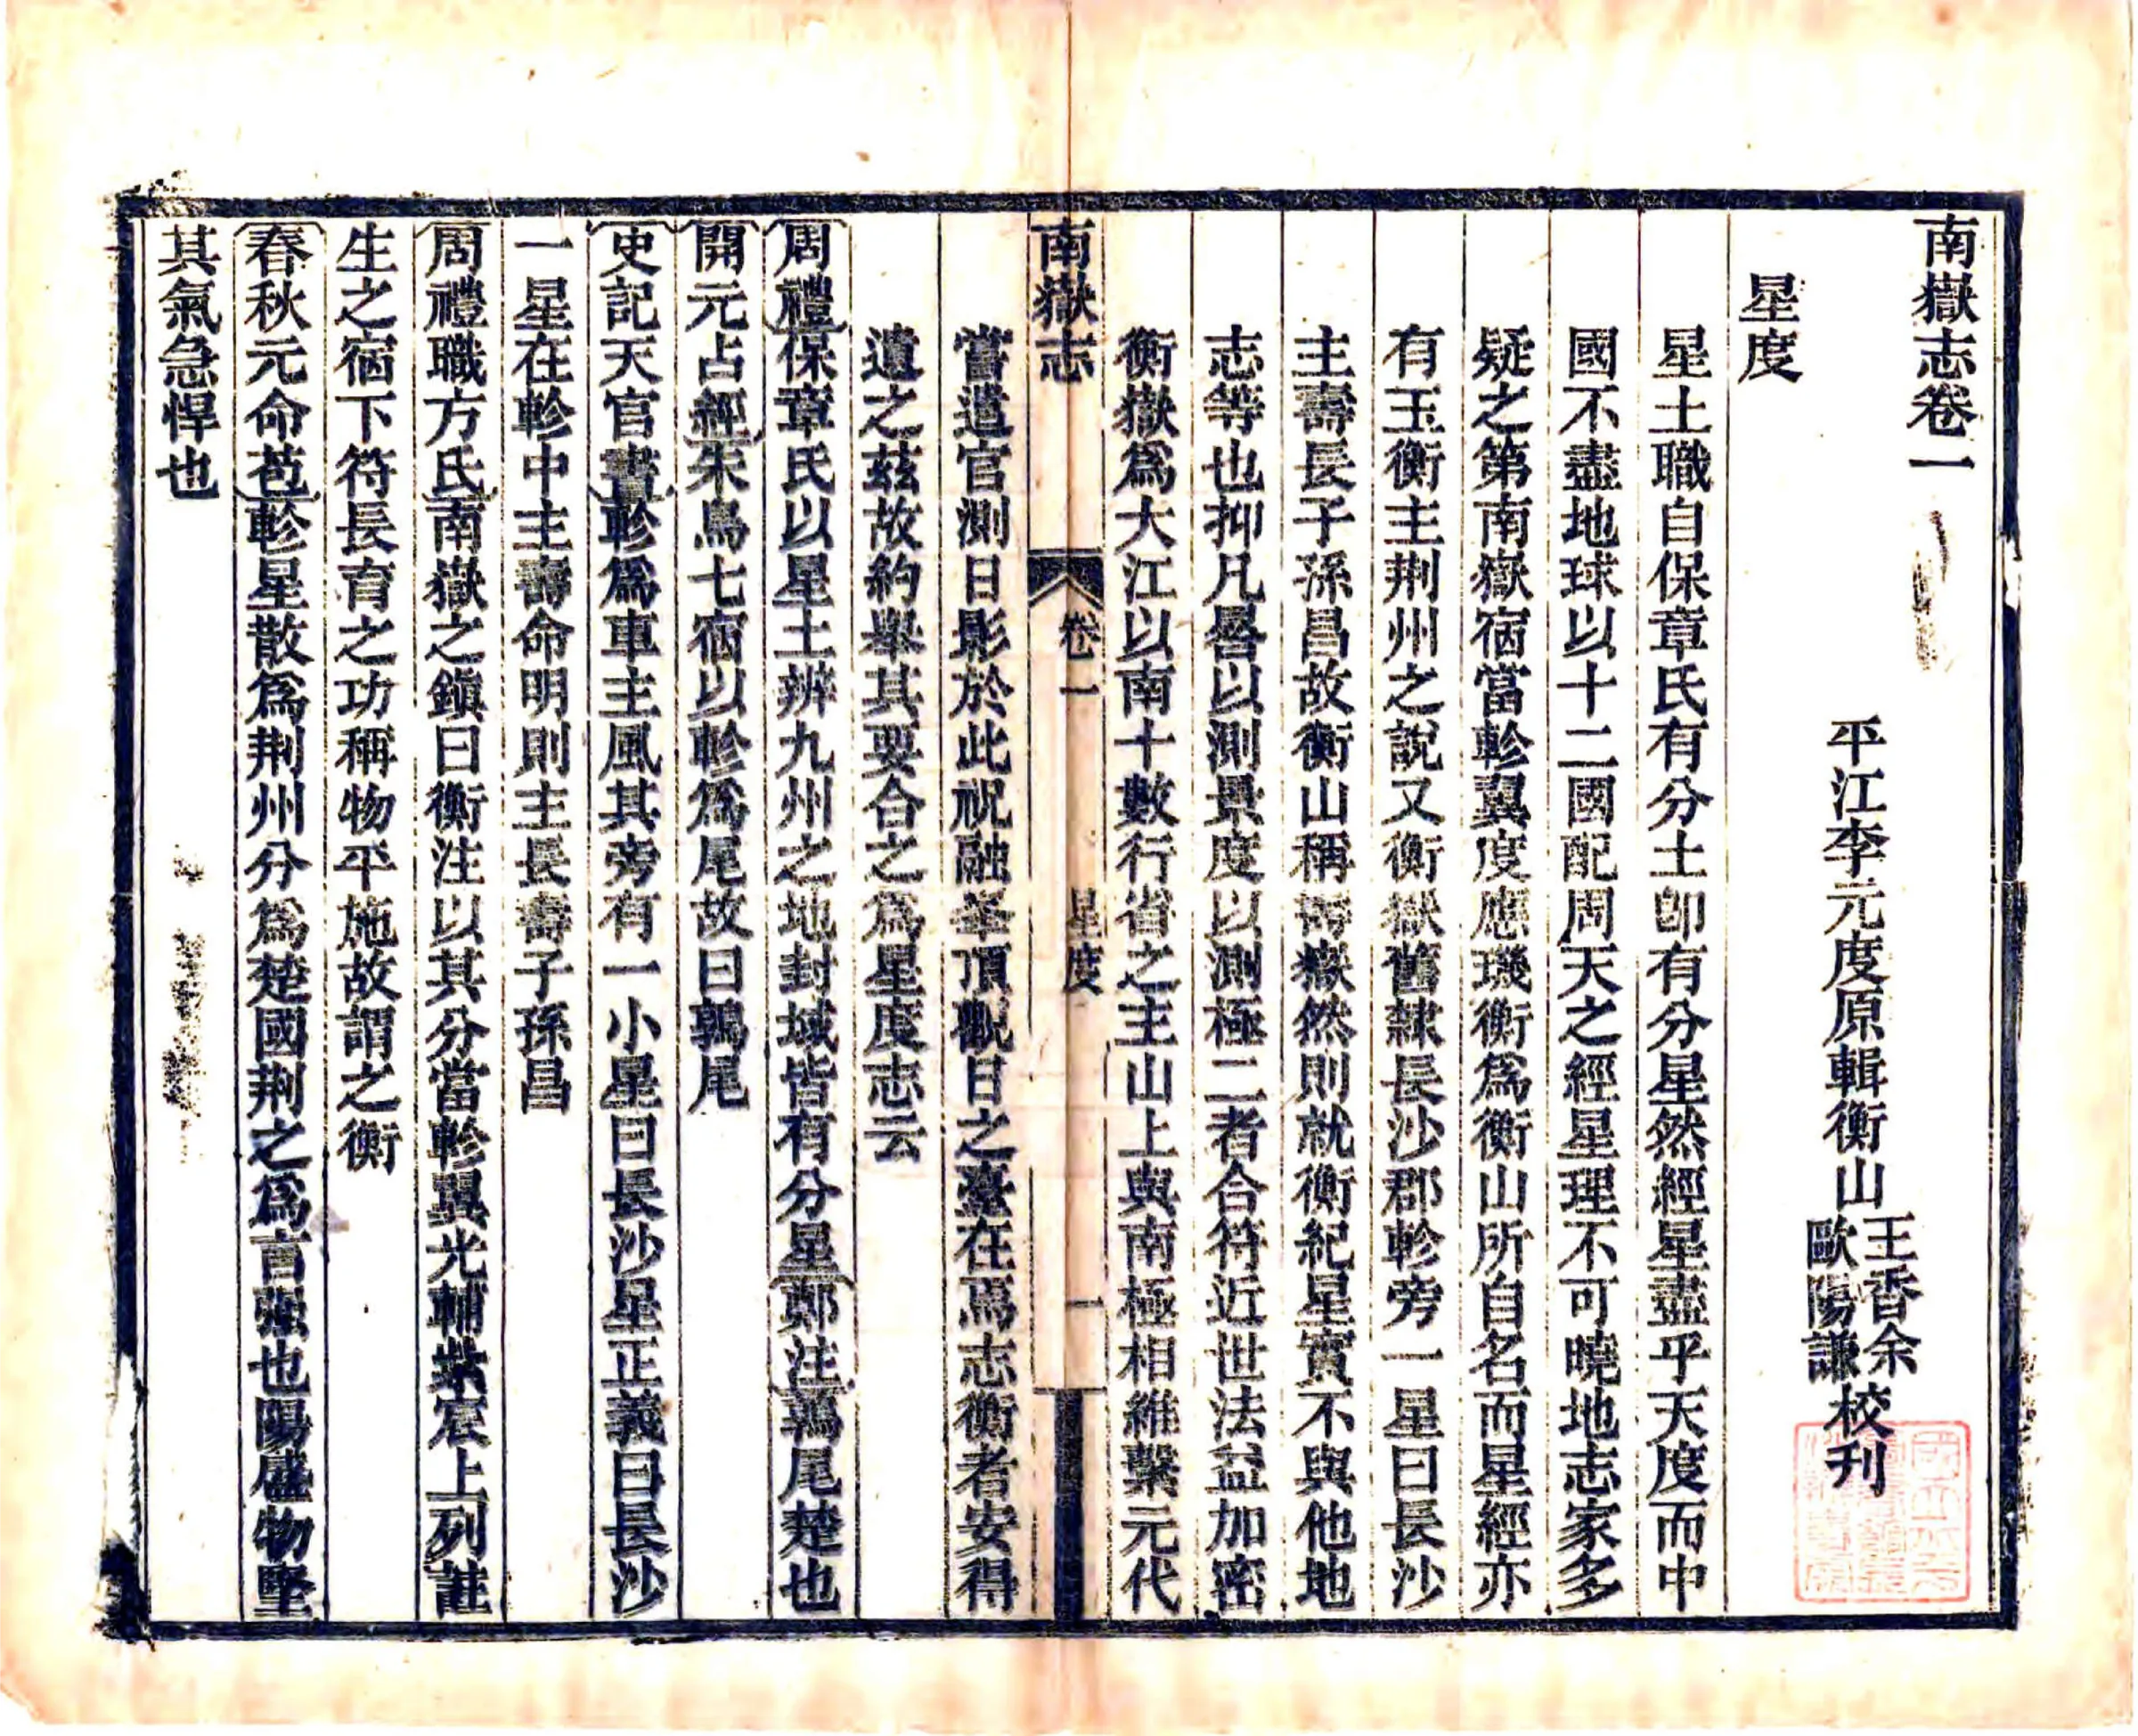 南嶽志卷一
平江李元度原輯衡山王香余歐陽謙校刊
星度
星土職自保章氏有分土卽有分星然經星盡乎天度而中
國不盡地球以十二國配周天之經星理不可曉地志家多
疑之第南嶽宿當軫翼度應璣衡爲衡山所自名而星經亦
有玉衡主荆州之說又衡嶽舊隸長沙郡軫旁一星曰長沙
主壽長子孫昌故衡山稱壽嶽然則就衡紀星實不與他地
志等也抑凡晷以測景度以測極二者合符近世法益加密
衡嶽爲大江以南十數行省之主山上與南極相維繫元代
嘗遣官測日影於此祝融峯頂觀日之臺在焉志衡者安得
遺之茲故約舉其要合之爲星度志云
南嶽志 卷一 星度 一
周禮保章氏以星土辨九州之地封域皆有分星鄭注鶉尾楚也
開元占經朱鳥七宿以軫爲尾故曰鶉尾
史記天官書軫爲車主風其旁有一小星曰長沙星正義曰長沙
一星在軫中主壽命明則主長壽子孫昌
周禮職方氏南嶽之鎭曰衡注以其分當軫翼光輔紫宸上列註
生之宿下符長育之功稱物平施故謂之衡
春秋元命苞軫星散爲荆州分爲楚國荆之爲言强也陽盛物堅
其氣急悍也